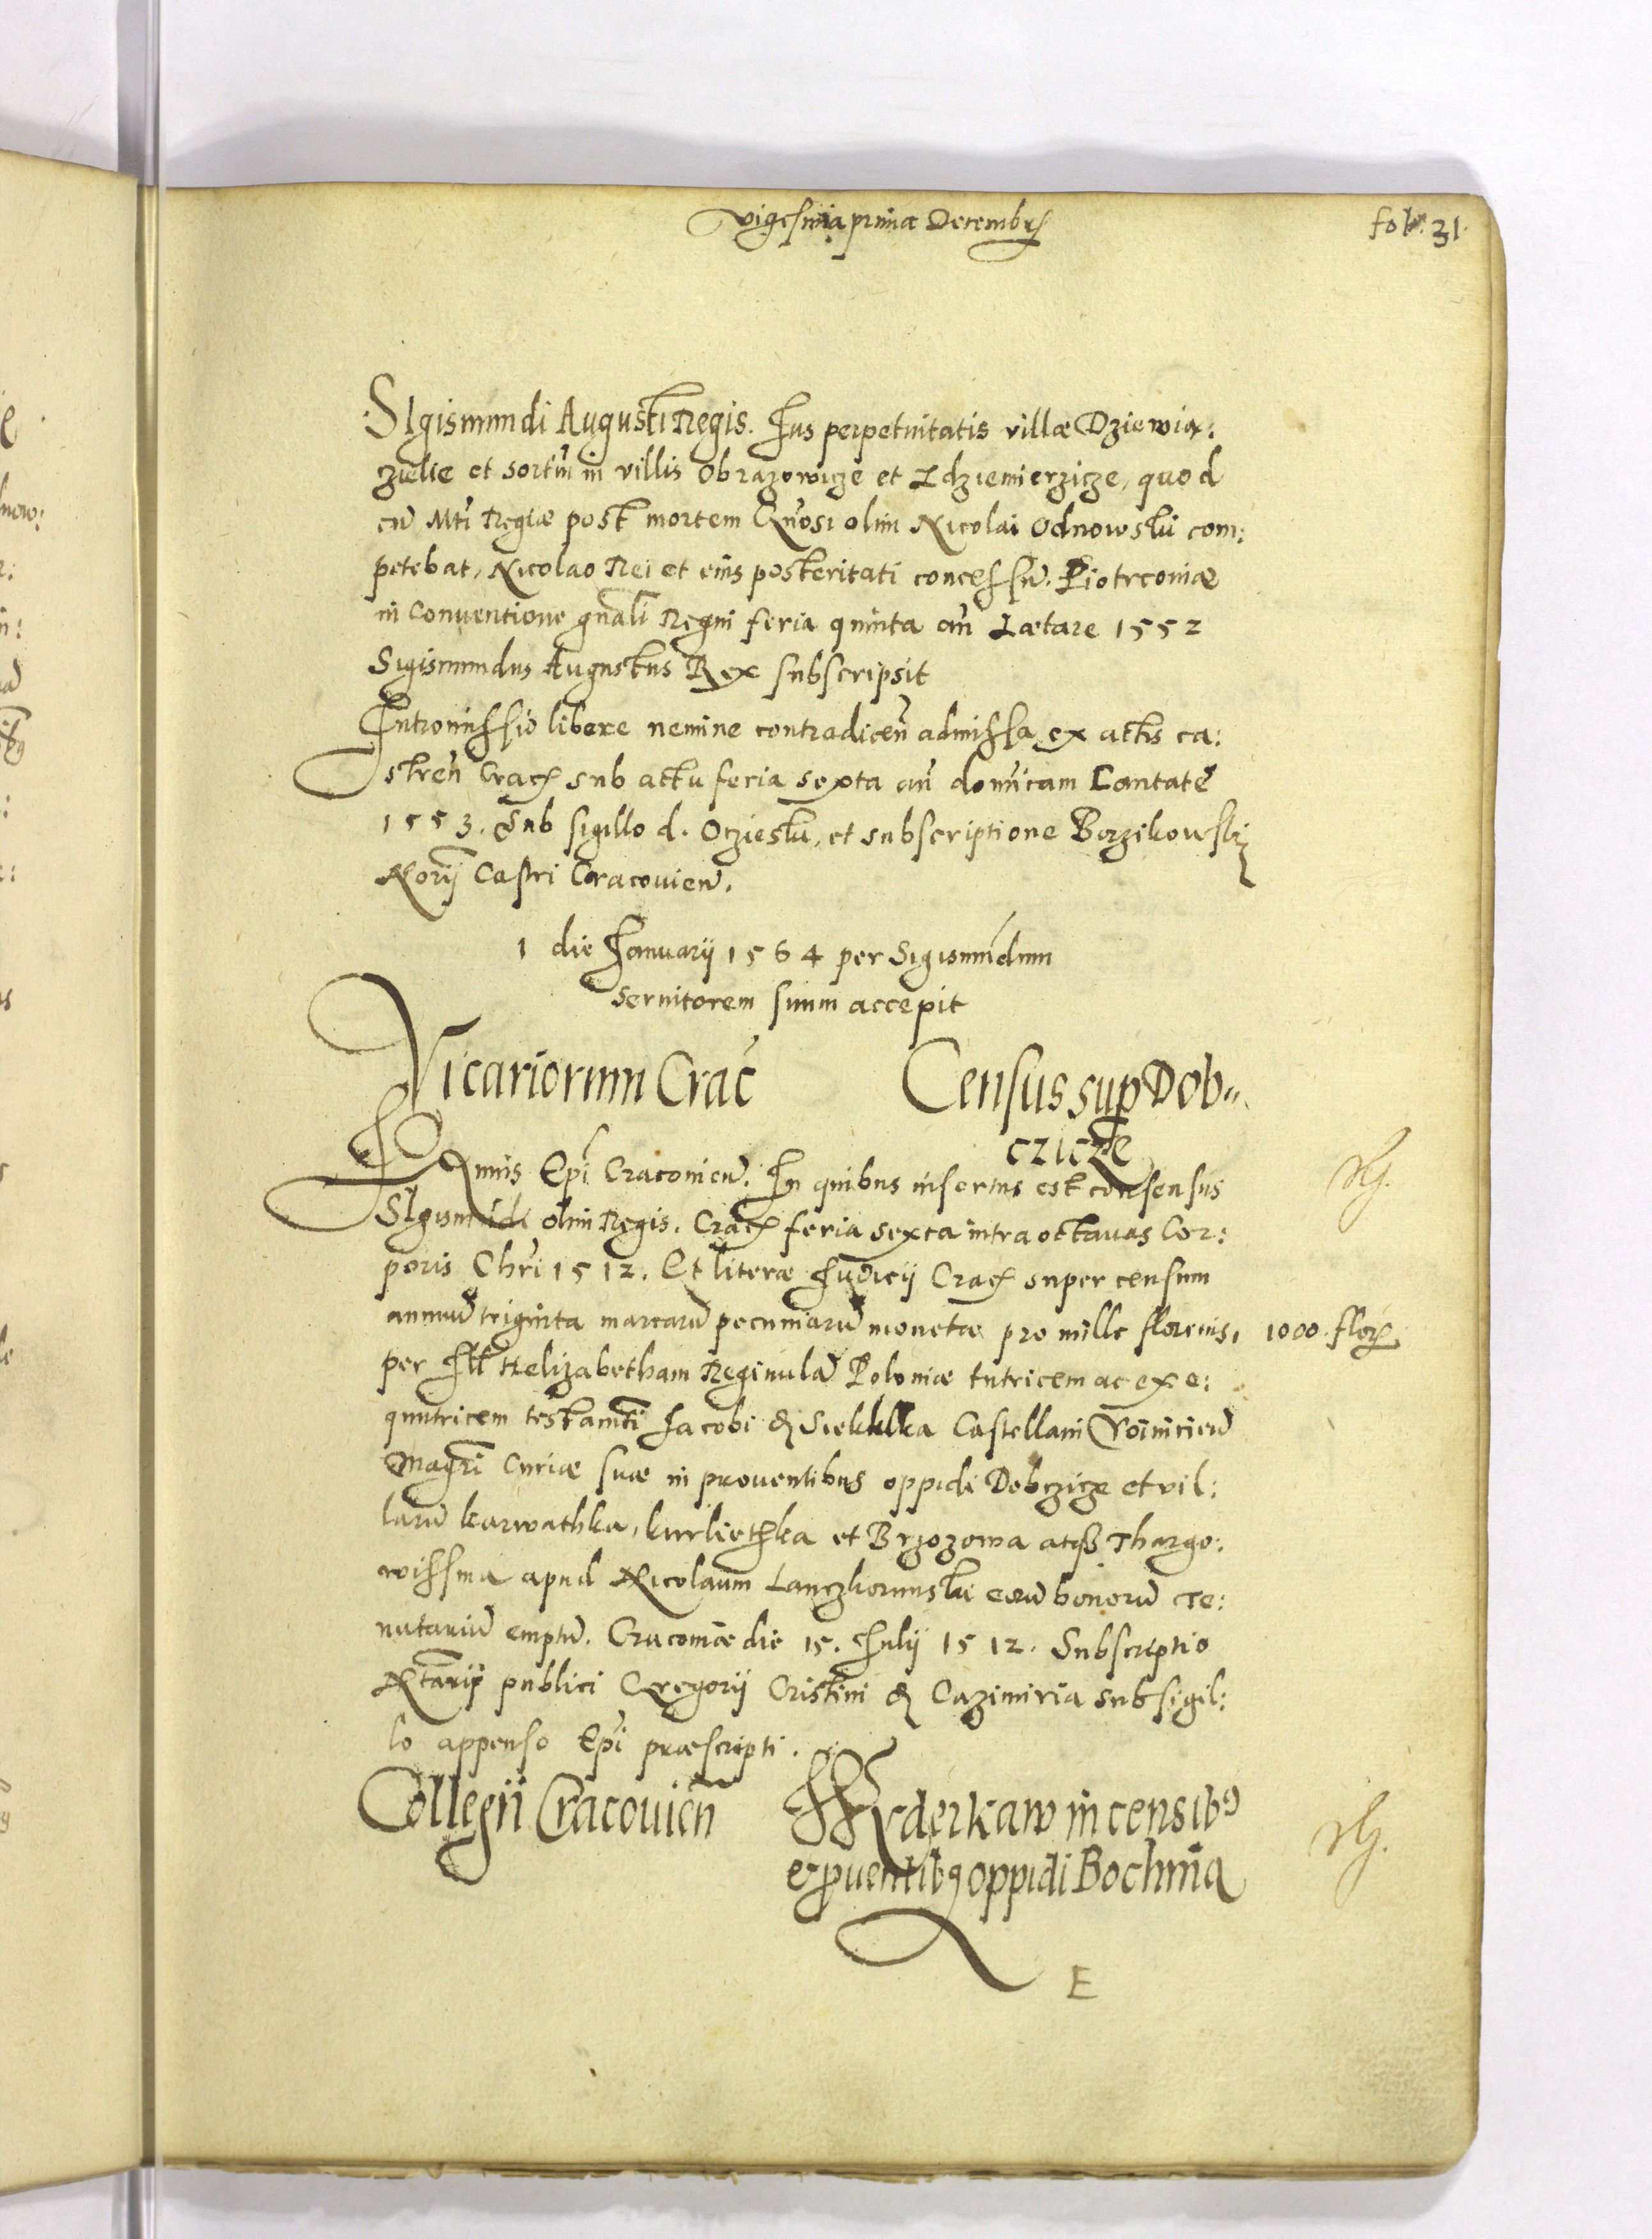 vigesima prima Decembris
fol: 31.
SIgismundi Augusti Regis. Jus perpetuitatis villæ Dziewia:
czielie et sortiũ in villis Obrazowicze et Idziemierzicze, quod
cũ Mti Regiæ post mortem Gñosi olim Nicolai Odnowski com:
petebat, Nicolao Rei et eius posteritati concessũ. Piotrconiæ
in Conventione gñali Regni feria quinta añ Lætare 1552
Sigismundus Augustus Rex subscripsit
Intromissio libere nemine contradiceñ admissa ex actis ca:
streñ Crac̃ sub actu feria sexta añ dom̃icam Cantate
1553. Sub sigillo d. Oczieski, et subscriptione Borzikowski
Norij Castri Cracovieñ.
1 die Januarij 1564 per Sigismundum
servitorem suum accepit
Vicariorum Crac̃
Census sup Dob„
czicze
Joannis Epi Cracovieñ. In quibus insertus est consensus
SIgismũdi olim Regis. Crac̃ feria sexta intra octavas Cor:
poris Chr̃i 1512. Et literæ Judicij Crac̃ super censum
annuũ triginta marcarũ pecuniarũ monetæ pro mille florenis,
1000. flor̃
per Ill Helizabetham Reginulã Poloniæ tutricem ac exe:
quutricem testamẽti Jacobi de Sieklklka Castellani Voiniciеñ
Magr̃i Curiæ suæ in proventibus oppidi Dobczicze et vil:
larũ karwathka, kurliethka et Brzozowa atqз Thargo:
wissina apud Nicolaum Lanczkorunski eorũ bonorũ Te:
nutariũ emptũ. Cracoviæ die 15. Julij 1512. Subscriptio
Ntarij publici Gregorij Cristini de Cazimiria sub sigil:
lo appenso Epi præscripti.
Collegii Cracovieñ
Fryderkaw in censibꝰ
et proventibꝰ oppidi Bochnia
E